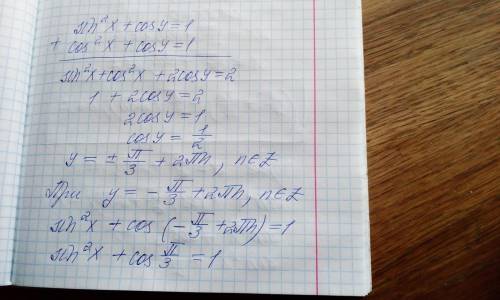 sin²x + cosy = 1
+ cos²x + cosy = 1
sin²x + cos²x + 2cosy = 2
1 + 2cosy = 2
2cosy = 1
cosy = 1/2
y = ± π/3 + 2πn, n∈Z
При y = - π/3 + 2πn, n∈Z
sin²x + cos(- π/3 + 2πn) = 1
sin²x + cos π/3 = 1